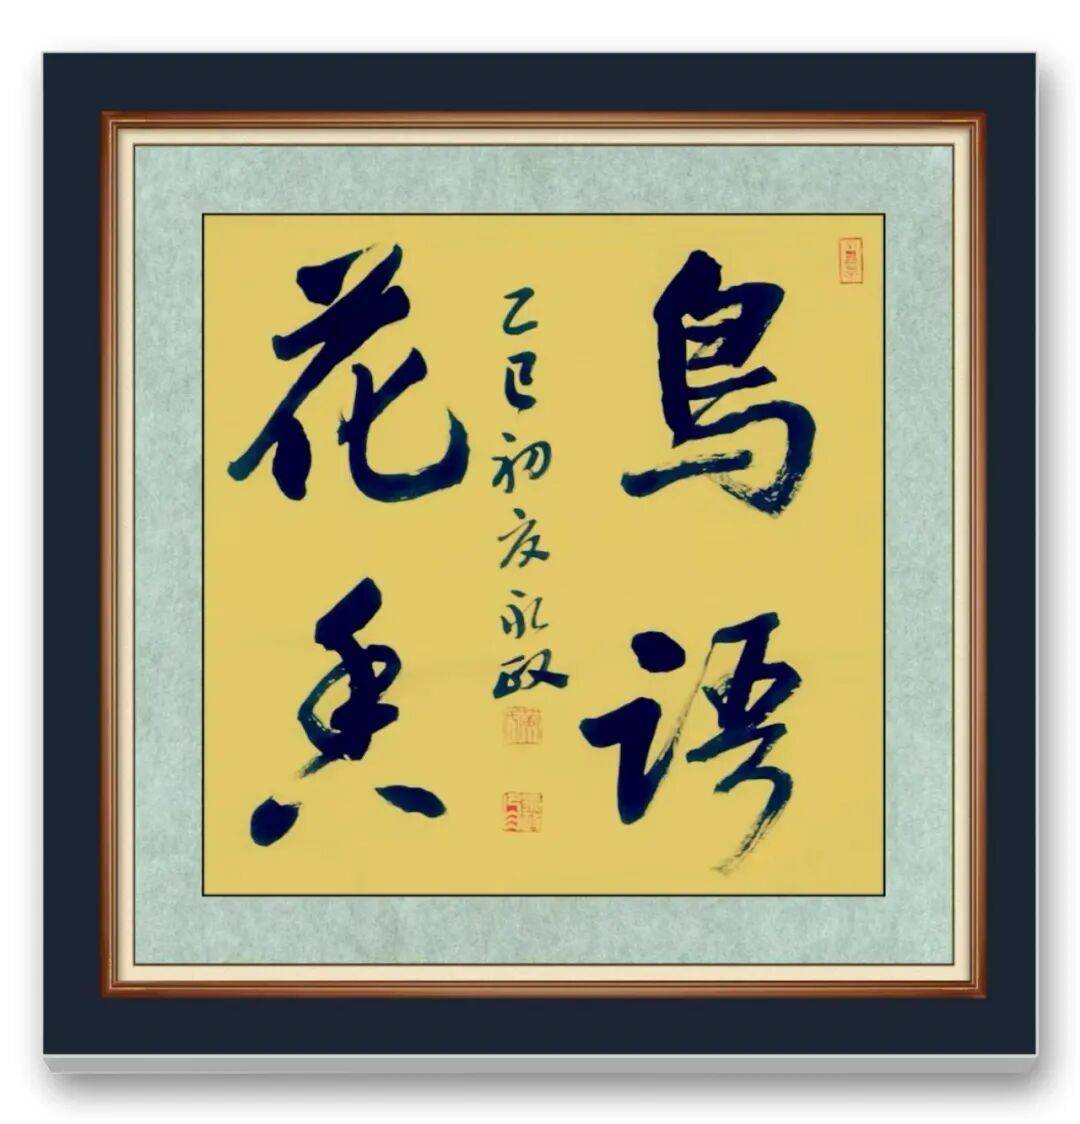 鳥語
花香
乙巳初夏永政